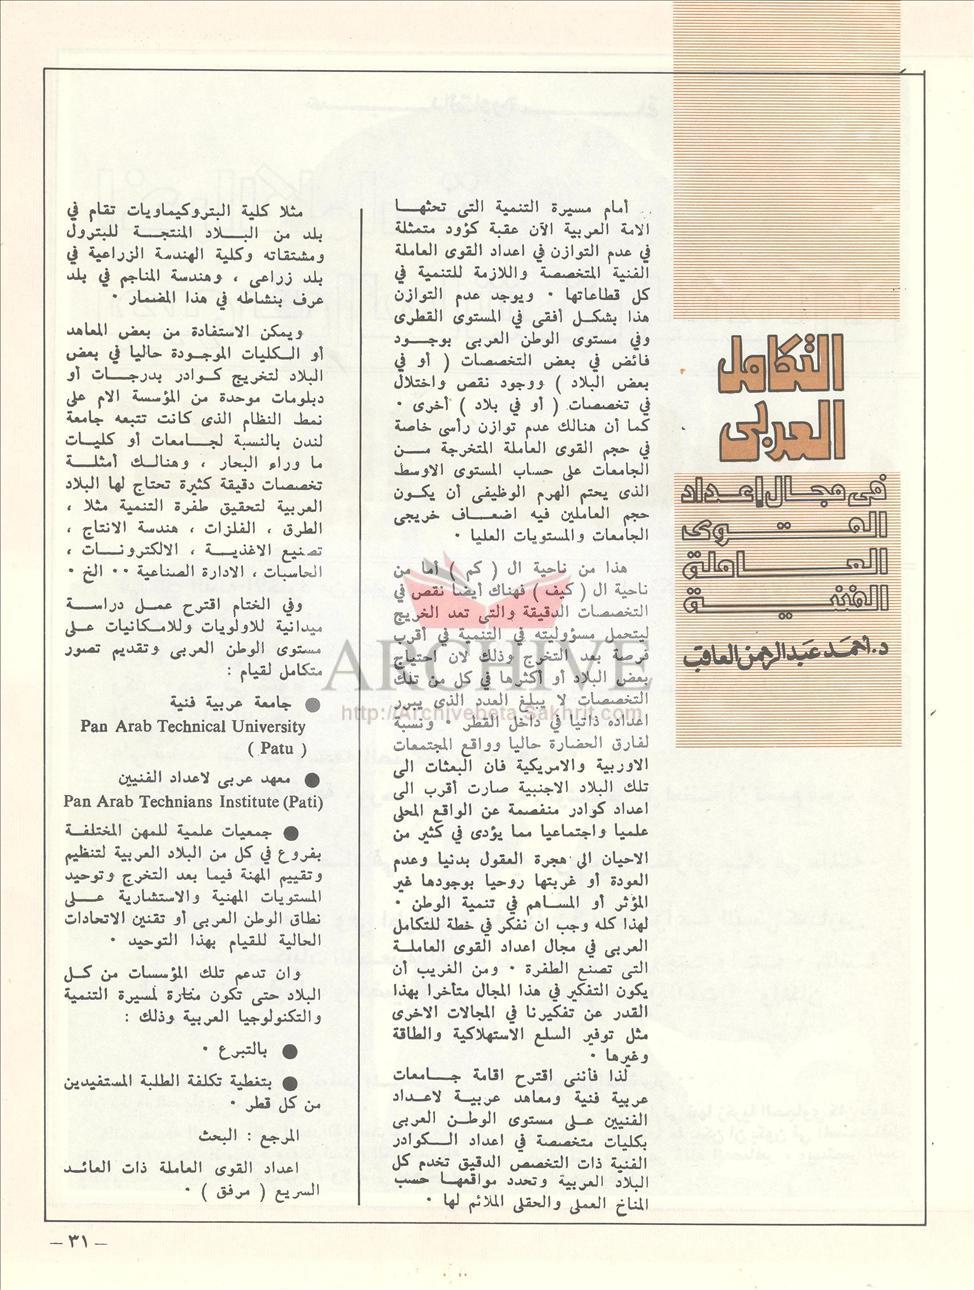 التكامل
العربى
فى مجال إعداد
القوى
العاملة
الفنية
د. أحمد عبد الرحمن العاقب
أمام مسيرة التنمية التى تحثها
الامة العربية الآن عقبة كؤود متمثلة
في عدم التوازن في اعداد القوى العاملة
الفنية المتخصصة واللازمة للتنمية في
كل قطاعاتها ٠ ويوجد عدم التوازن
هذا بشكل أفقى في المستوى القطرى
وفي مستوى الوطن العربى بوجود
فائض في بعض التخصصات ( أو في
بعض البلاد ) ووجود نقص واختلال
في تخصصات ( أو في بلاد ) أخرى ٠
كما أن هنالك عدم توازن رأسى خاصة
في حجم القوى العاملة المتخرجة من
الجامعات على حساب المستوى الاوسط
الذى يحتم الهرم الوظيفى أن يكون
حجم العاملين فيه اضعاف خريجى
الجامعات والمستويات العليا ٠
هذا من ناحية ال ( كم ) أما من
ناحية ال ( كيف ) فهناك أيضا نقص في
التخصصات الدقيقة والتى تعد الخريج
ليتحمل مسؤوليته في التنمية في أقرب
فرصة بعد التخرج وذلك لان احتياج
بعض البلاد أو أكثرها في كل من تلك
التخصصات لا يبلغ العدد الذى يبرر
اعداده ذاتيا في داخل القطر ٠ ونسبة
لفارق الحضارة حاليا وواقع المجتمعات
الاوربية والامريكية فان البعثات الى
تلك البلاد الاجنبية صارت أقرب الى
اعداد كوادر منفصمة عن الواقع المحلى
علميا واجتماعيا مما يؤدى في كثير من
الاحيان الى هجرة العقول بدنيا وعدم
العودة أو غربتها روحيا بوجودها غير
المؤثر أو المساهم في تنمية الوطن ٠
لهذا كله وجب ان نفكر في خطة للتكامل
العربى في مجال اعداد القوى العاملة
التى تصنع الطفرة ٠ ومن الغريب أن
يكون التفكير في هذا المجال متأخرا بهذا
القدر عن تفكيرنا في المجالات الاخرى
مثل توفير السلع الاستهلاكية والطاقة
وغيرها ٠
لذا فاننى اقترح اقامة جامعات
عربية فنية ومعاهد عربية لاعداد
الفنيين على مستوى الوطن العربى
بكليات متخصصة في اعداد الكوادر
الفنية ذات التخصص الدقيق تخدم كل
البلاد العربية وتحدد مواقعها حسب
المناخ العملى والحقلى الملائم لها ٠
مثلا كلية البتروكيماويات تقام في
بلد من البلاد المنتجة للبترول
ومشتقاته وكلية الهندسة الزراعية في
بلد زراعى ، وهندسة المناجم في بلد
عرف بنشاطه في هذا المضمار ٠
ويمكن الاستفادة من بعض المعاهد
أو الكليات الموجودة حاليا في بعض
البلاد لتخريج كوادر بدرجات أو
دبلومات موحدة من المؤسسة الام على
نمط النظام الذى كانت تتبعه جامعة
لندن بالنسبة لجامعات أو كليات
ما وراء البحار ، وهنالك أمثلة
تخصصات دقيقة كثيرة تحتاج لها البلاد
العربية لتحقيق طفرة التنمية مثلا ،
الطرق ، الفلزات ، هندسة الانتاج ،
تصنيع الاغذية ، الالكترونات ،
الحاسبات ، الادارة الصناعية ٠٠ الخ ٠
وفي الختام اقترح عمل دراسة
ميدانية للاولويات وللامكانيات على
مستوى الوطن العربى وتقديم تصور
متكامل لقيام :
● جامعة عربية فنية
Pan Arab Technical University
( Patu )
● معهد عربى لاعداد الفنيين
Pan Arab Technians Institute (Pati)
● جمعيات علمية للمهن المختلفة
بفروع في كل من البلاد العربية لتنظيم
وتقييم المهنة فيما بعد التخرج وتوحيد
المستويات المهنية والاستشارية على
نطاق الوطن العربى أو تقنين الاتحادات
الحالية للقيام بهذا التوحيد ٠
وان تدعم تلك المؤسسات من كل
البلاد حتى تكون منارة لمسيرة التنمية
والتكنولوجيا العربية وذلك :
● بالتبرع ٠
● بتغطية تكلفة الطلبة المستفيدين
من كل قطر ٠
المرجع : البحث
اعداد القوى العاملة ذات العائد
السريع ( مرفق ) ٠
ARCHIVE
http://Archivebeta.Sakhrit.com
– ٣١ –